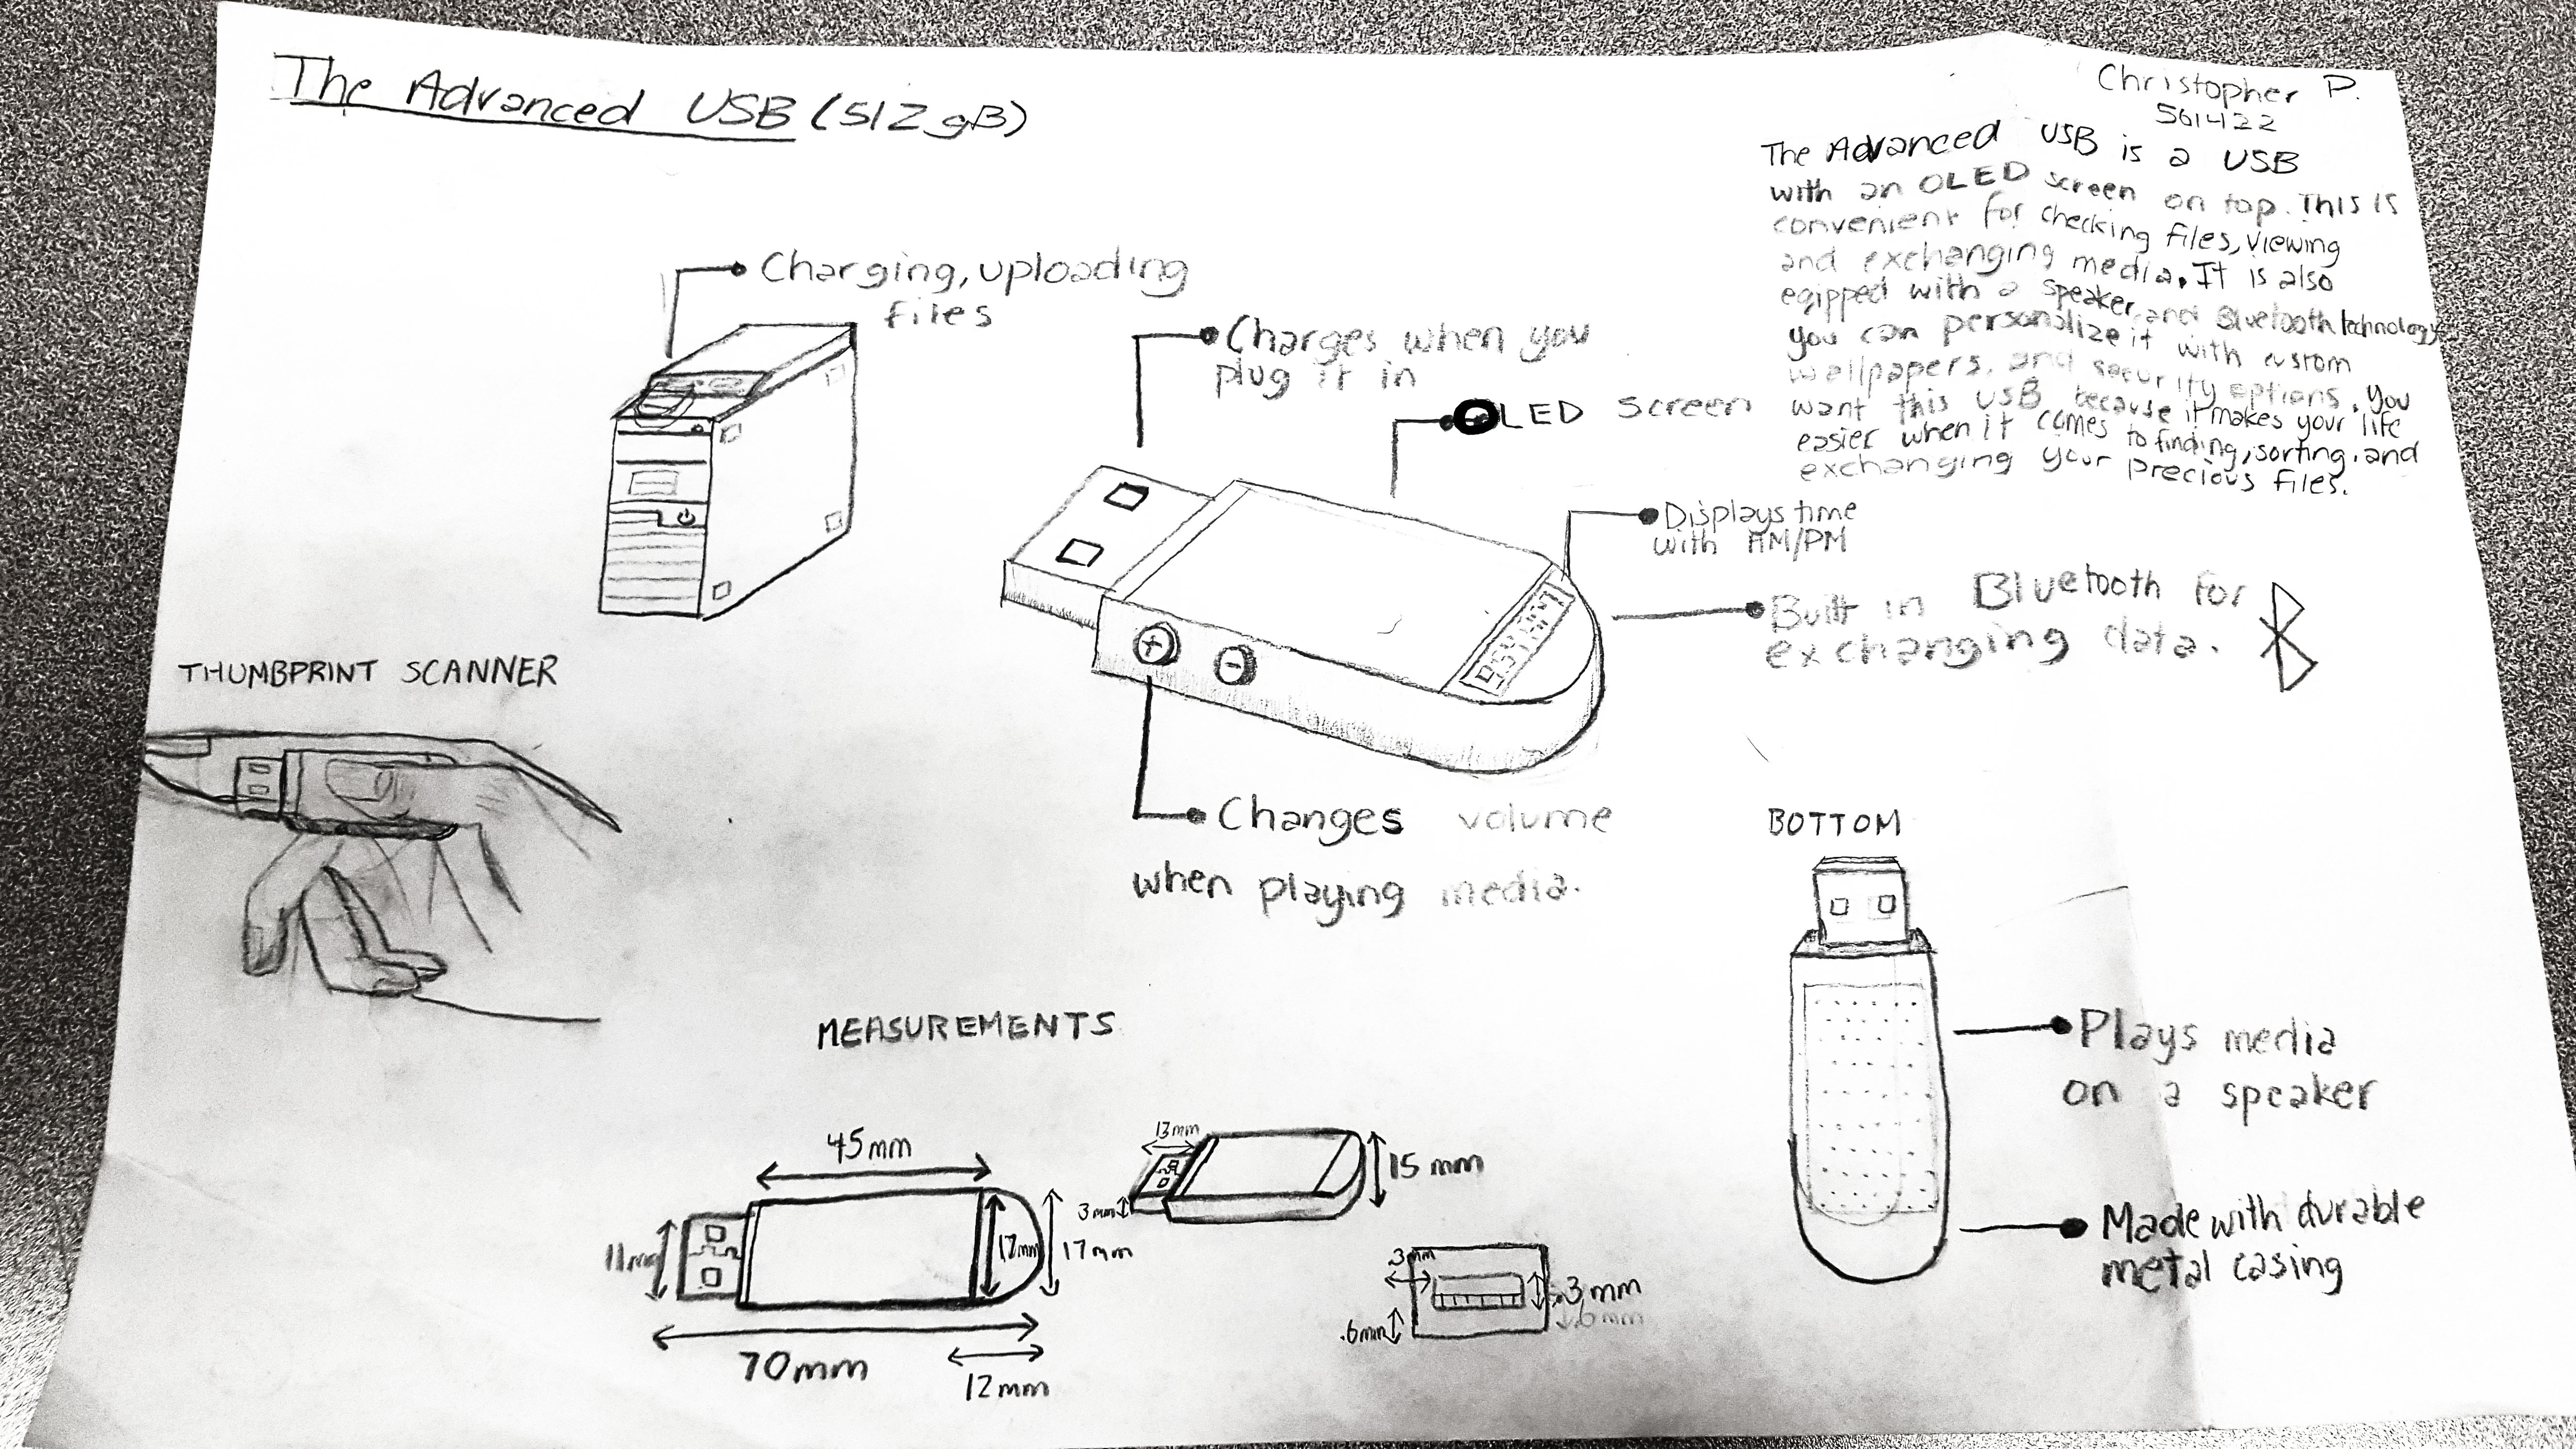 The Advanced USB (512gB)
Christopher P.
561422
The Advanced USB is a USB
with an OLED screen on top. This is
convenient for checking files, viewing
and exchanging media. It is also
eqipped with a speaker, and Bluetooth technology
you can personalize it with custom
wallpapers, and security options. You
want this USB because it makes your life
easier when it comes to finding, sorting, and
exchanging your precious files.
Charging, uploading
files
Charges when you
plug it in
OLED screen
Displays time
with AM/PM
Built in Bluetooth for
exchanging data.
THUMBPRINT SCANNER
+
-
Changes volume
when playing media.
BOTTOM
Plays media
on a speaker
Made with durable
metal casing
MEASUREMENTS
45mm
11mm
17mm
70mm
12mm
13mm
3mm
15mm
.3mm
.6mm
.6mm